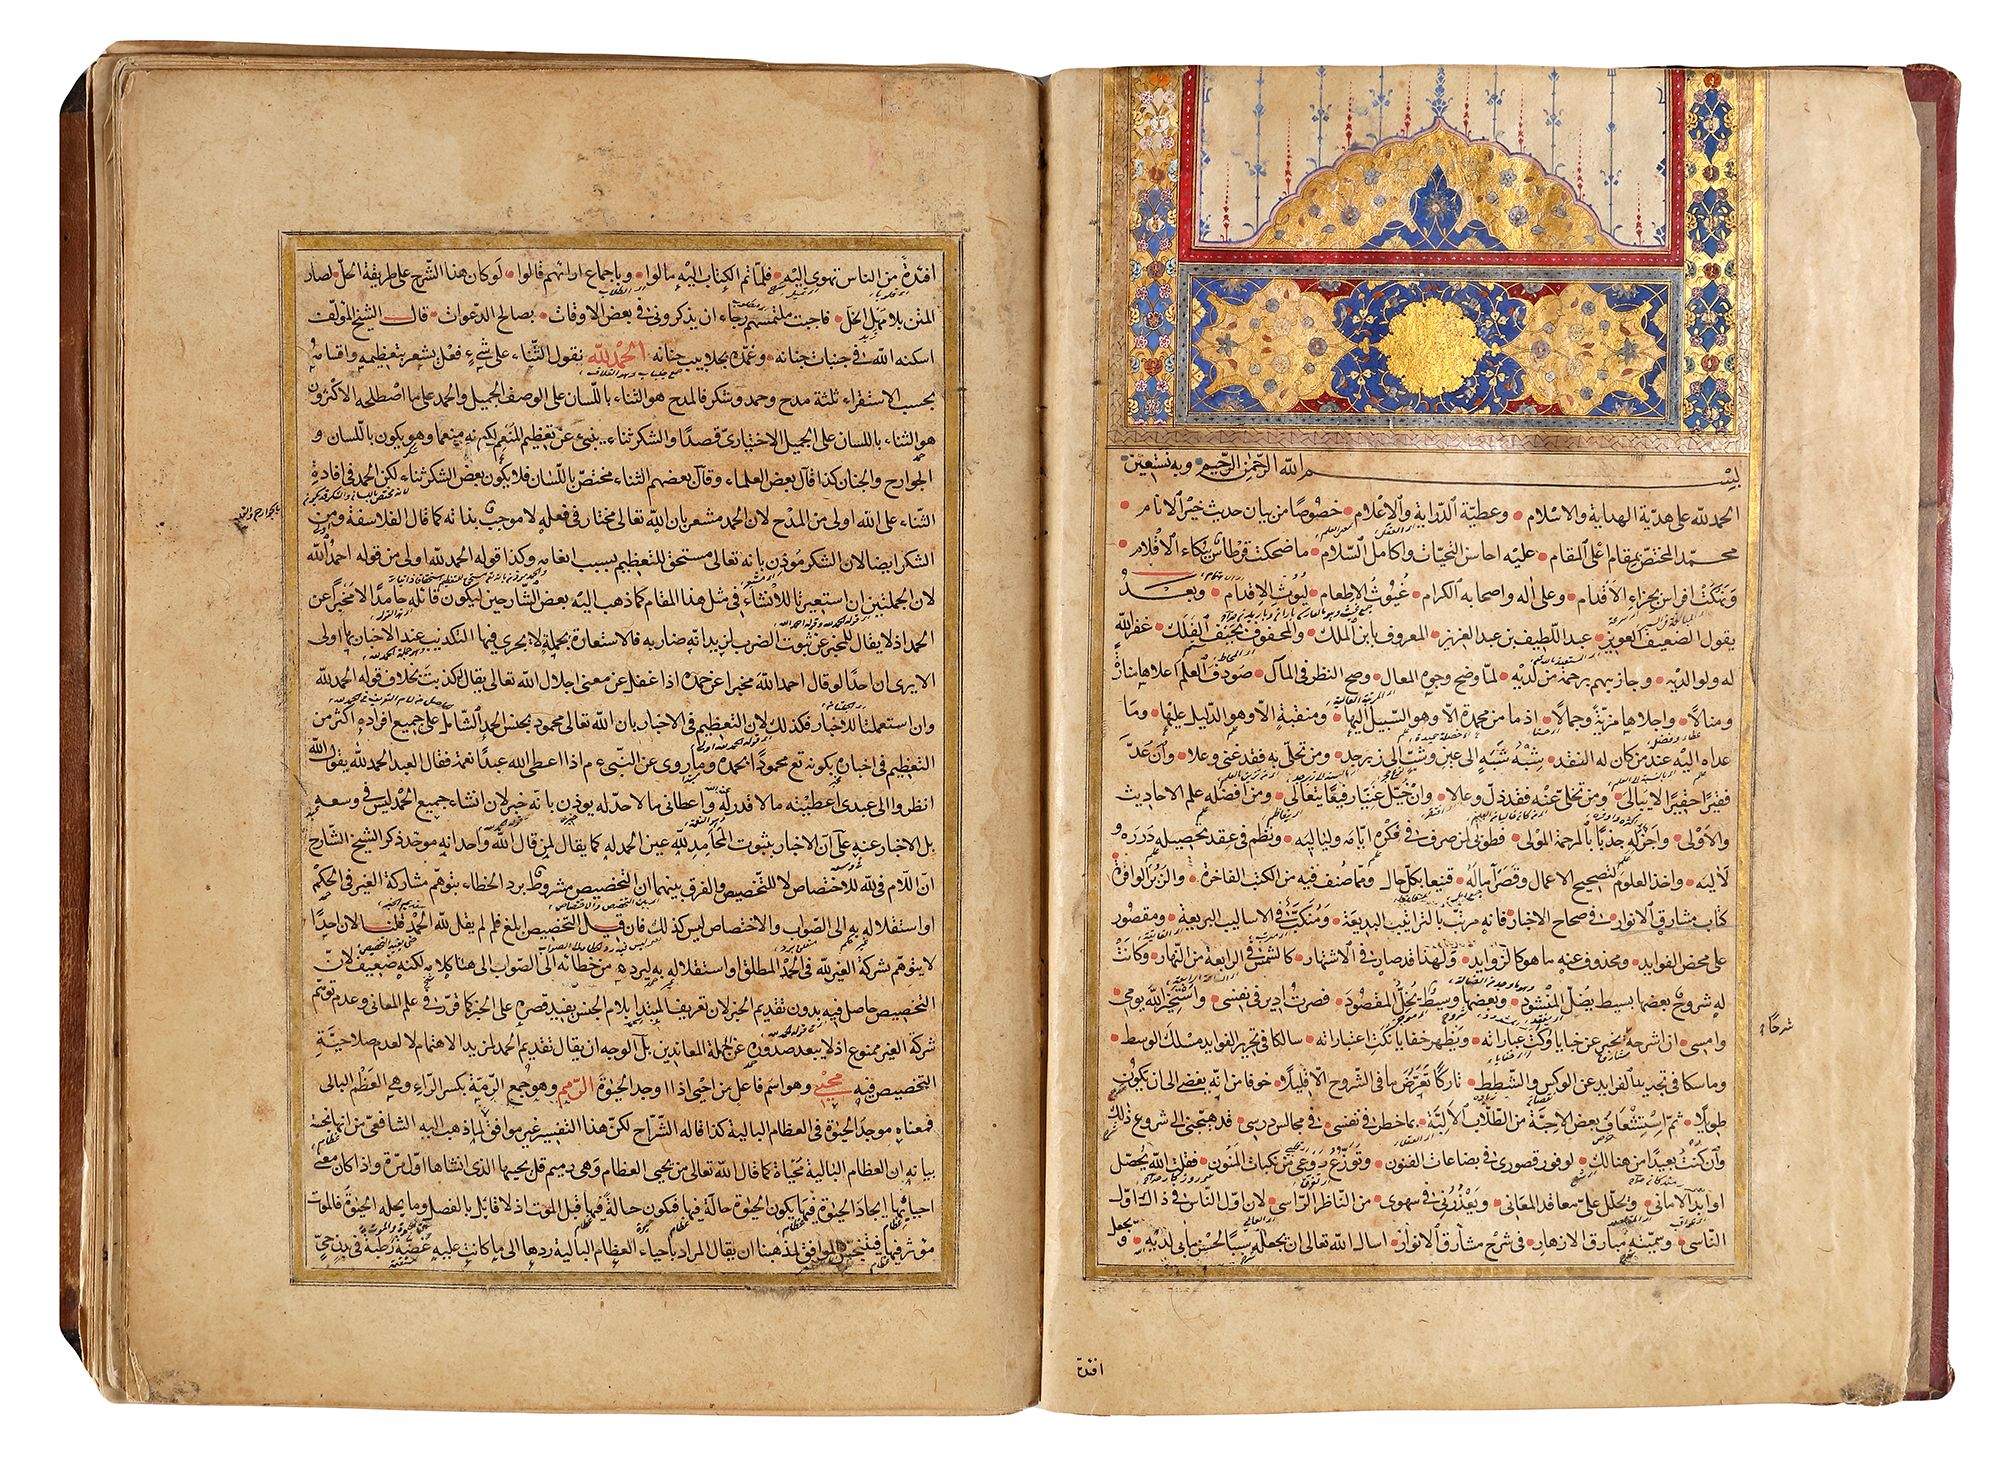 بسم الله الرحمن الرحيم وبه نستعين
الحمد لله على هدية الهداية والاسلام وعطية الدراية والاعلام خصوصا من بيان حديث خير الانام
محمد المختص بمقام اعلى المقام عليه احاسن التحيات واكامل السلام ما ضحكت قرطاس ببكاء الاقلام
وعلى اله واصحابه الكرام غيوث الاطعام ليوث الاقدام وبعد
يقول الضعيف العويز عبد اللطيف بن عبد العزيز المعروف بابن الملك والمحفوف بجنف الفلك غفر الله
له ولوالديه وجازيهم برحمة من لديه لما وضح وجوه المعال وصح النظر في المآل صودف العلم اعلاها منارة
ومنالا واجلاها مزية وجمالا اذ ما من محمدة الا وهو السبيل اليها ومنقبة الا وهو الدليل عليها وما
عداه اليه عند من كان له النقد شبه شبه الى عين وشيت الى زبرجد ومن تحلى به فقد غنى وعلا وان عد
فقيرا حقيرا لا يبالى ومن تخلى عنه فقد ذل وعالا وان خيل غنيا رفيعا يتعالى ومن افضله علم الاحاديث
والاولى واجزله جذبا بالمرحمة المولى فطوبى لمن صرف في فكره ايامه ولياليه ونظم في عقد تحصيله درره و
لآليه واخذ العلوم لتصحيح الاعمال وقصر آماله قنيعا بكل حال ومما صنف فيه من الكتب الفاخرة والزبر الوافرة
كتاب مشارق الانوار في صحاح الاخبار فانه مرتب بالتراتيب البديعة ومنكت في الاساليب البريعة ومقصور
على محض الفوايد ومحذوف عنه ما هو كالزوايد ولهذا قد صار في الاشتهار كالشمس في الرابعة من النهار وكانت
له شروح بعضها بسيط يضل المنشود وبعضها وسيط يخل المقصود فصرت ادير في نفسي واستخير الله يومي
وامسي ان اشرحه يخبر عن خبايا نكت عباراته ويظهر خفايا نكت اعتباراته سالكا في تحرير الفوايد مسلك الوسط
وماسكا في تجديب الفرايد عن الوكس والشطط تاركا تعرض ما في الشروح الا قليلا خوفا من انه يفضي الى ان يكون
طويلا ثم استشعاف بعض الاحبة من الطلاب الالبة بما خطر في نفسي في مجالس درسي قد هيجني الى شروع ذلك
وان كنت بعيدا من هنالك لوفور قصوري في بضاعات الفنون وتوزع روعي من نكبات المنون فقلت الله يحصل
اوابد الاماني ويحلل على معاقد المعاني ويعذروني في سهوي من الناظر الراسي لان اول الناس في ذاك اول
الناسي وسميته مبارق الازهار في شرح مشارق الانوار اسال الله تعالى ان يجعله سببا لحسن مآبي لديه ويجعل
شرحا
افئدة
افئدة من الناس تهوي اليه فلما تم الكتاب اليه مالوا وباجماع ارائهم قالوا لو كان هذا الشرح على طريقة الحل لصار
المتن بلا مهل الخل فاجبت ملتمسهم رجاء ان يذكروني في بعض الاوقات بصالح الدعوات قال الشيخ المؤلف
اسكنه الله في جنات جنانه وغمده بجلابيب حنانه الحمد لله نقول الثناء على شيء فعل يشعر بتعظيمه واقسامه
بحسب الاستقراء ثلثة مدح وحمد وشكر فالمدح هو الثناء باللسان على الوصف الجميل والحمد على ما اصطلحه الاكثرون
هو الثناء باللسان على الجميل الاختياري قصدا والشكر ثناء ينبئ عن تعظيم المنعم لكونه منعما وهو يكون باللسان و
الجوارح والجنان كذا قال بعض العلماء وقال بعضهم الثناء مختص باللسان فلا يكون بعض الشكر ثناء لكن الحمد في افادة
الثناء على الله اولى من المدح لان الحمد مشعر بان الله تعالى مختار في فعله لا موجب بذاته كما قال الفلاسفة ومن
الشكر ايضا لان الشكر مؤذن بانه تعالى مستحق للتعظيم بسبب انعامه وكذا قوله الحمد لله اولى من قوله احمد الله
لان الجملتين ان استعيرتا للانشاء في مثل هذا المقام كما ذهب اليه بعض الشارحين ليكون قائله حامدا لا مخبرا عن
الحمد اذ لا يقال للمخبر عن ثبوت الضرب لزيد انه ضارب فالاستعارة بجملة لا يجري فيها التكذيب عند الاخبار بها اولى
الا يرى ان احدا لو قال احمد الله مخبرا عن حمده اذا غفل عن معنى اجلال الله تعالى يقال له كذبت بخلاف قوله الحمد لله
وان استعملتا للاخبار فكذلك لان التعظيم في الاخبار بان الله تعالى محمود بجنس الحمد الشامل على جميع افراده اكثر من
التعظيم في اخباره بكونه تع محمودا بحمده وما روى عن النبي ء م اذا اعطى الله عبدا نعمة فقال العبد الحمد لله يقول الله
انظروا الى عبدي اعطيته ما لا قدر له واعطاني ما لا حد له يؤذن بانه خبر لان انشاء جميع الحمد ليس في وسعه
بل الاخبار عنه على ان الاخبار بثبوت المحامد لله عين الحمد له كما يقال لمن قال الله واحد انه موحد ذكر الشيخ الشارح
ان اللام في لله للاختصاص لا للتخصيص والفرق بينهما ان التخصيص مشروط برد الخطاء بتوهم مشاركة الغير في الحكم
او استقلاله به الى الصواب والاختصاص ليس كذلك فان قيل التخصيص ابلغ فلم لم يقل لله الحمد قلنا لان احدا
لا يتوهم بشركة الغير لله في الحمد المطلق او استقلاله به ليرده من خطائه الى الصواب الى هنا كلامه لكنه ضعيف لان
التخصيص حاصل فيه بدون تقديم الخبر لان تعريف المبتدا بلام الجنس يفيد قصره على الخبر كما قرر في علم المعاني وعدم توهم
شركة الغير ممنوع اذ لا يبعد صدوره عن الجهلة المعاندين بل الوجه ان يقال تقديم الحمد لمزيد الاهتمام لا لعدم صلاحية
التخصيص فيه محيي وهو اسم فاعل من احيى اذا اوجد الحيوة الرمم وهو جمع الرمة بكسر الراء وهي العظم البالي
فمعناه موجد الحيوة في العظام البالية كذا قاله الشراح لكن هذا التفسير غير موافق لما ذهب اليه الشافعي من انها نجسة
بيانه ان العظام البالية محياة كما قال الله تعالى من يحيي العظام وهي رميم قل يحييها الذي انشاها اول مرة واذا كان معنى
احيائها ايجاد الحيوة فيها يكون الحيوة حالة فيها فيكون حالة فيها قبل الموت اذ لا قايل بالفصل وما يحله الحيوة فالموت
مؤثر فيها فيتنجس فالموافق لمذهبنا ان يقال المراد باحياء العظام البالية ردها الى ما كانت عليه غضة رطبة في بدن حي